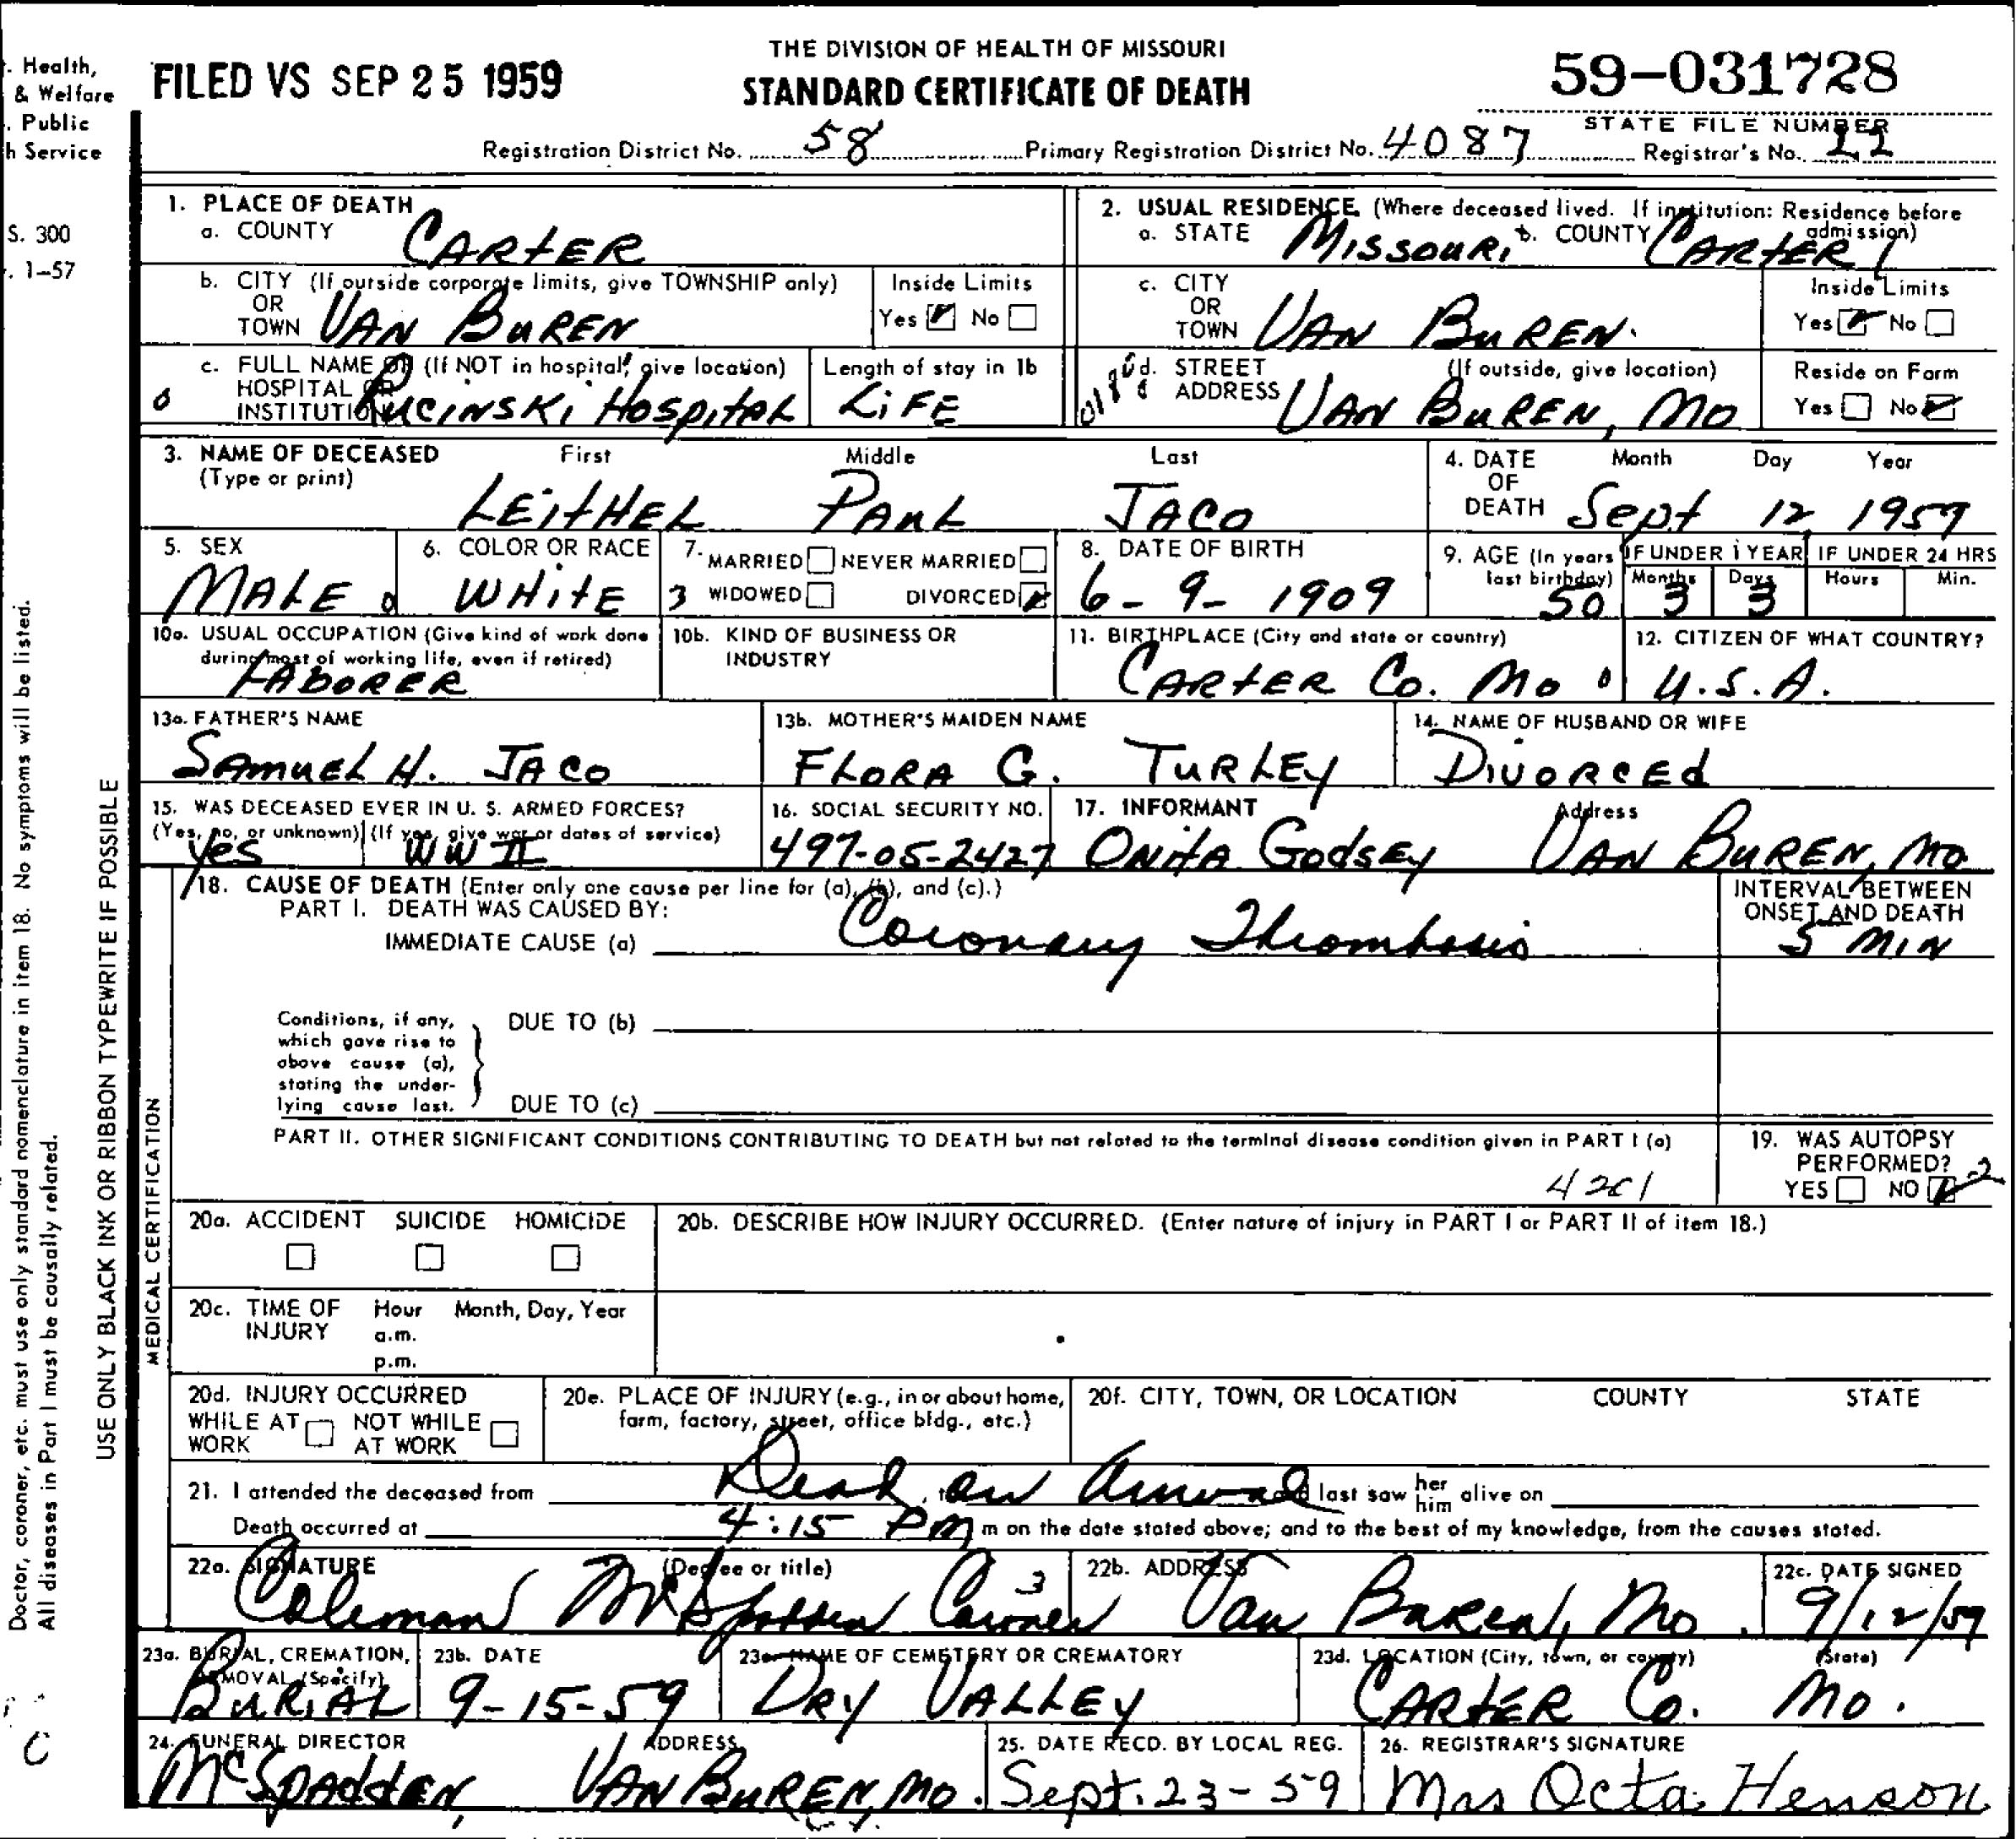 THE DIVISION OF HEALTH OF MISSOURI
. Health,
& Welfare
. Public
h Service
FILED VS SEP 25 1959
STANDARD CERTIFICATE OF DEATH
59-031728
STATE FILE NUMBER
Registration District No. 58 Primary Registration District No. 4087 Registrar's No. 22
S. 300
. 1-57
1. PLACE OF DEATH
a. COUNTY CARTER
2. USUAL RESIDENCE (Where deceased lived. If institution: Residence before admission)
a. STATE MISSOURI b. COUNTY CARTER
b. CITY (If outside corporate limits, give TOWNSHIP only)
OR
TOWN VAN BUREN
Inside Limits
Yes No
c. CITY
OR
TOWN VAN BUREN.
Inside Limits
Yes No
c. FULL NAME OF (If NOT in hospital, give location)
HOSPITAL OR
INSTITUTION PUCINSKI HOSPITAL
Length of stay in 1b
LIFE
d. STREET (If outside, give location)
ADDRESS VAN BUREN, MO
Reside on Farm
Yes No
3. NAME OF DECEASED First Middle Last
(Type or print)
LEITHEL PAUL JACO
4. DATE Month Day Year
OF
DEATH Sept 12, 1959
5. SEX
MALE
6. COLOR OR RACE
WHITE
7. MARRIED NEVER MARRIED
3 WIDOWED DIVORCED
8. DATE OF BIRTH
6-9-1909
9. AGE (In years last birthday)
50
IF UNDER 1 YEAR
Months Days
3 3
IF UNDER 24 HRS
Hours Min.
10a. USUAL OCCUPATION (Give kind of work done during most of working life, even if retired)
LABORER
10b. KIND OF BUSINESS OR INDUSTRY
11. BIRTHPLACE (City and state or country)
CARTER Co. Mo
12. CITIZEN OF WHAT COUNTRY?
U.S.A.
13a. FATHER'S NAME
SAMUEL H. JACO
13b. MOTHER'S MAIDEN NAME
FLORA G. TURLEY
14. NAME OF HUSBAND OR WIFE
DIVORCED
15. WAS DECEASED EVER IN U. S. ARMED FORCES?
(Yes, no, or unknown) (If yes, give war or dates of service)
yes WW II
16. SOCIAL SECURITY NO.
497-05-2427
17. INFORMANT Address
ONITA GODSEY VAN BUREN, MO
18. CAUSE OF DEATH (Enter only one cause per line for (a), (b), and (c).)
PART I. DEATH WAS CAUSED BY:
IMMEDIATE CAUSE (a) Coronary Thrombosis
INTERVAL BETWEEN ONSET AND DEATH
5 MIN
Conditions, if any, which gave rise to above cause (a), stating the underlying cause last.
DUE TO (b)
DUE TO (c)
PART II. OTHER SIGNIFICANT CONDITIONS CONTRIBUTING TO DEATH but not related to the terminal disease condition given in PART I (a)
4201
19. WAS AUTOPSY PERFORMED?
YES NO 2
20a. ACCIDENT SUICIDE HOMICIDE
20b. DESCRIBE HOW INJURY OCCURRED. (Enter nature of injury in PART I or PART II of item 18.)
20c. TIME OF INJURY Hour Month, Day, Year
a.m.
p.m.
20d. INJURY OCCURRED
WHILE AT WORK NOT WHILE AT WORK
20e. PLACE OF INJURY (e.g., in or about home, farm, factory, street, office bldg., etc.)
20f. CITY, TOWN, OR LOCATION COUNTY STATE
21. I attended the deceased from Dead on Arrival last saw her him alive on
Death occurred at 4:15 PM m on the date stated above; and to the best of my knowledge, from the causes stated.
22a. SIGNATURE (Degree or title)
Coleman McSpadden Coroner 3
22b. ADDRESS
Van Buren, Mo.
22c. DATE SIGNED
9/12/59
23a. BURIAL, CREMATION, REMOVAL (Specify)
BURIAL
23b. DATE
9-15-59
23c. NAME OF CEMETERY OR CREMATORY
DRY VALLEY
23d. LOCATION (City, town, or county) (State)
CARTER Co. Mo.
24. FUNERAL DIRECTOR ADDRESS
McSPADDEN, VAN BUREN, MO.
25. DATE RECD. BY LOCAL REG.
Sept. 23-59
26. REGISTRAR'S SIGNATURE
Mrs Octa Henson
MEDICAL CERTIFICATION
USE ONLY BLACK INK OR RIBBON TYPEWRITE IF POSSIBLE
Doctor, coroner, etc. must use only standard nomenclature in item 18. No symptoms will be listed.
All diseases in Part I must be causally related.
C